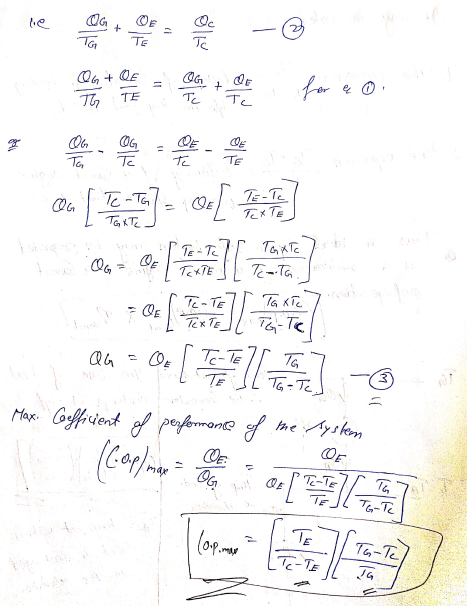 i.e QG/TG + QE/TE = QC/TC — ②
QG/TG + QE/TE = QG/TC + QE/TC for e ①.
QG/TG - QG/TC = QE/TC - QE/TE
QG [TC-TG / TG×TC] = QE [TE-TC / TC×TE]
QG = QE [TE-TC / TC×TE] [TG×TC / TC-TG]
= QE [TC-TE / TC×TE] [TG×TC / TG-TC]
QG = QE [TC-TE / TE] [TG / TG-TC] — ③
Max. Coefficient of performance of the System
(C.O.P)max = QE/QG = QE / QE [TC-TE / TE] [TG / TG-TC]
C.O.P.max = [TE / TC-TE] [TG-TC / TG]